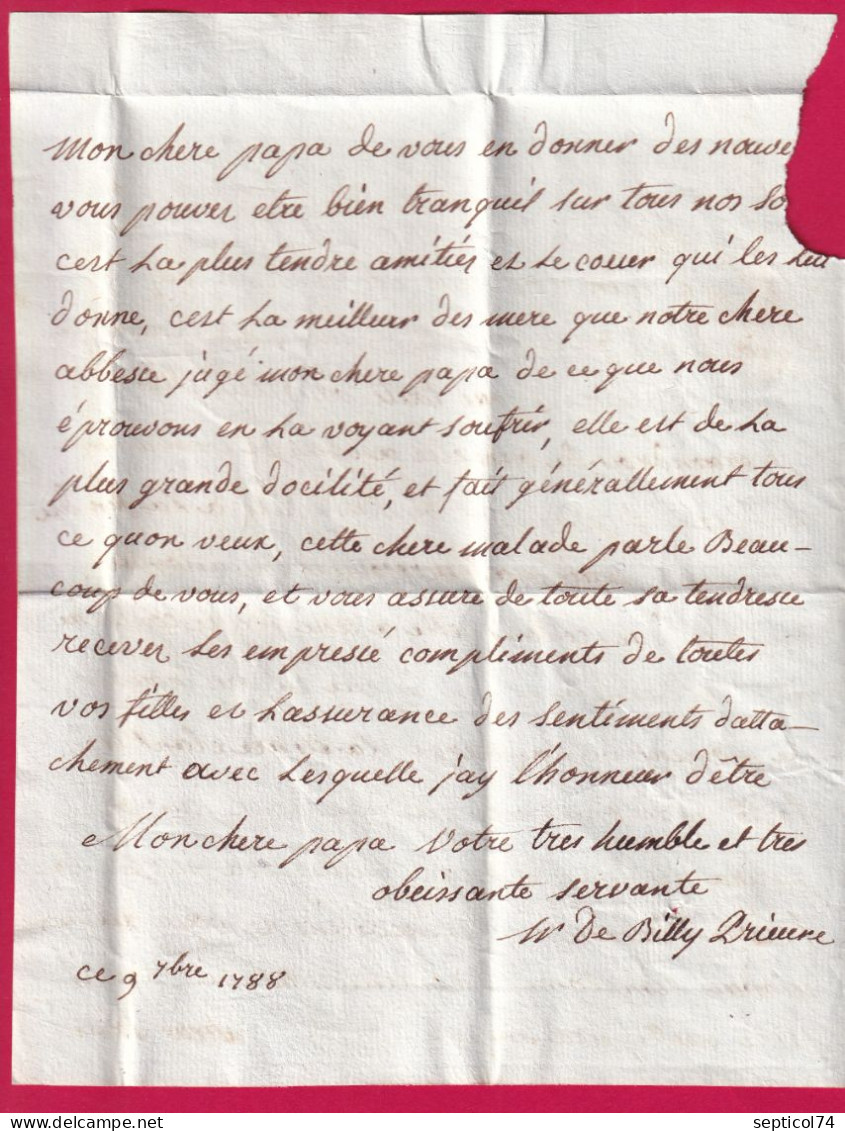 Mon chere papa de vous en donner des nouve
vous pouver etre bien tranquil sur tous nos so
cest La plus tendre amitiés et Le coeur qui les Lui
donne, cest La meilleur des mere que notre chere
abbesse jugé mon chere papa de ce que nous
éprouvons en La voyant soufrir, elle est de La
plus grande docilité, et fait générallement tous
ce quon veux, cette chere malade parle Beau-
coup de vous, et vous assure de toute sa tendresse
recever Les empressé compliments de toutes
vos filles et Lassurance des sentiments datta-
chement avec Lesquelle jay l'honneur d'être
Mon chere papa Votre tres humble et tres
obeissante servante
De Billy Prieure
ce 9 7bre 1788
septicol74